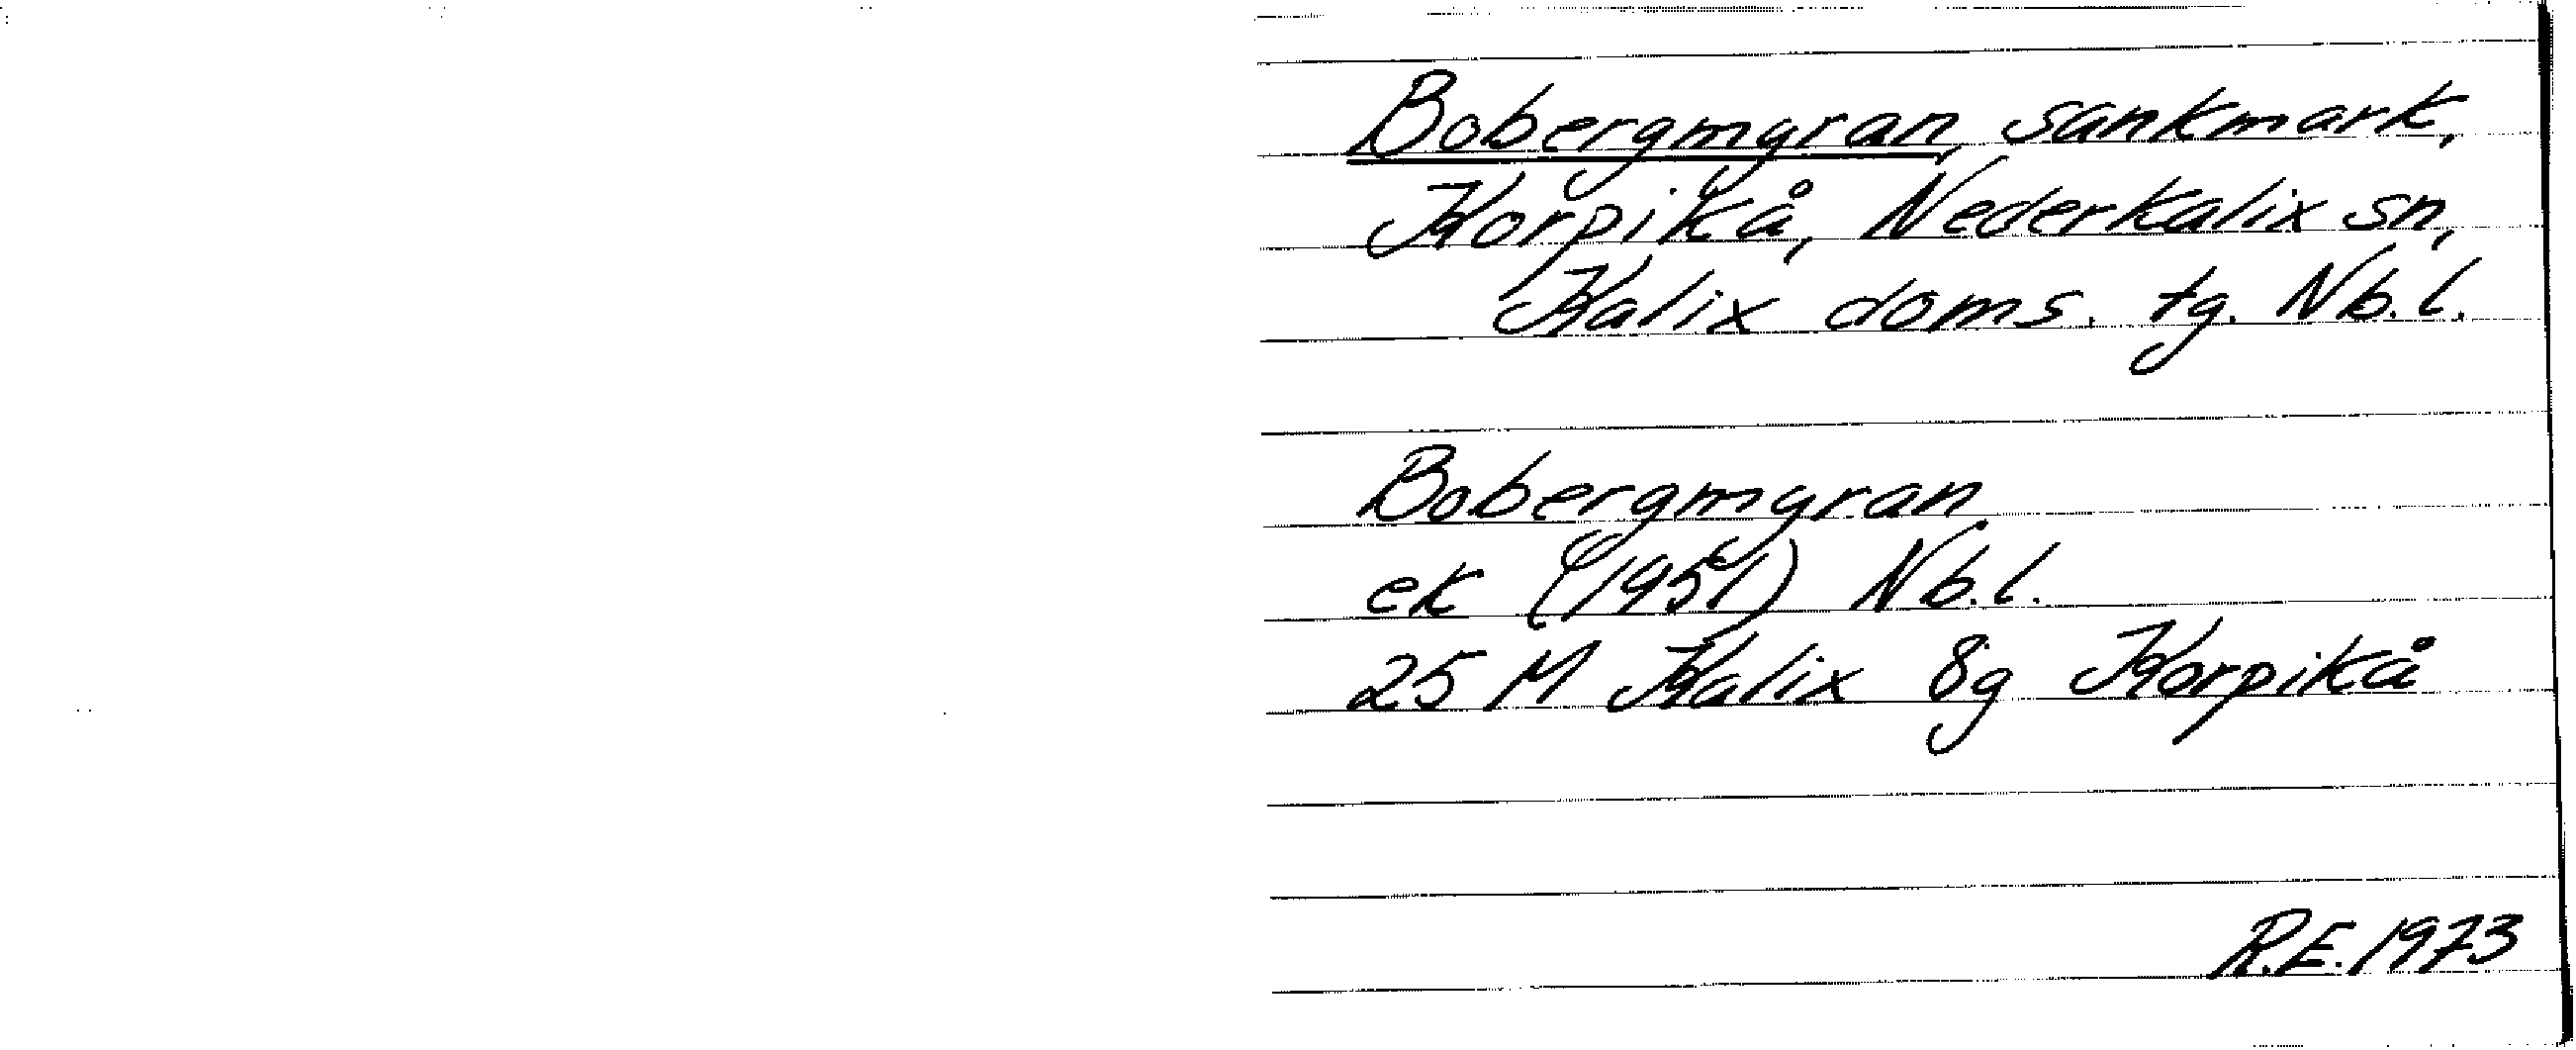 Bobergmyran, sankmark,
Korpikå, Nederkalix sn,
Kalix doms. tg. Nb.l.
Bobergmyran
ek (1951) Nb.l.
25 M Kalix 8g Korpikå
R.E. 1973